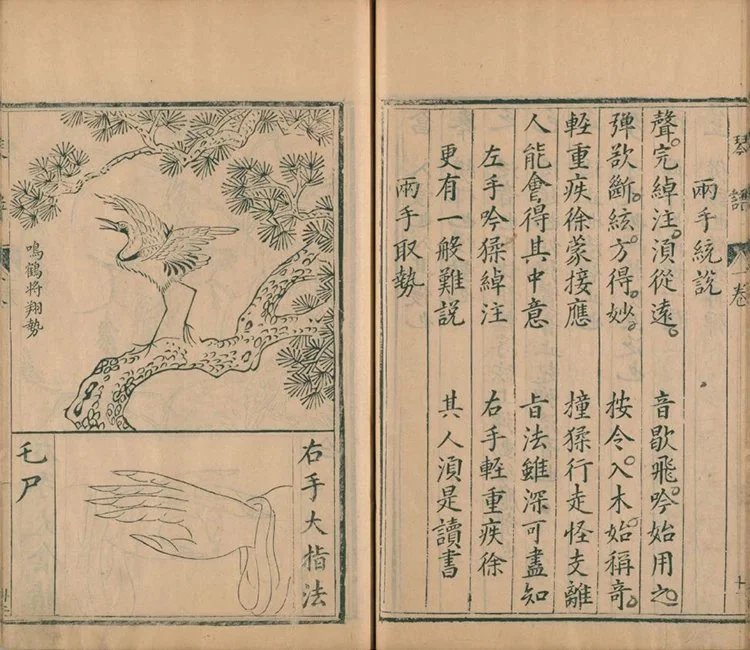 琴譜 一卷
兩手統說
聲完綽注須從遠。 音歇飛吟始用之。
彈欲斷。絃方得妙。 按令入木始稱奇。
輕重疾徐蒙接應 撞猱行走怪支離
人能會得其中意 旨法雖深可盡知
左手吟猱綽注 右手輕重疾徐
更有一般難說 其人須是讀書
兩手取勢
鳴鶴将翔勢
右手大指法
乇尸